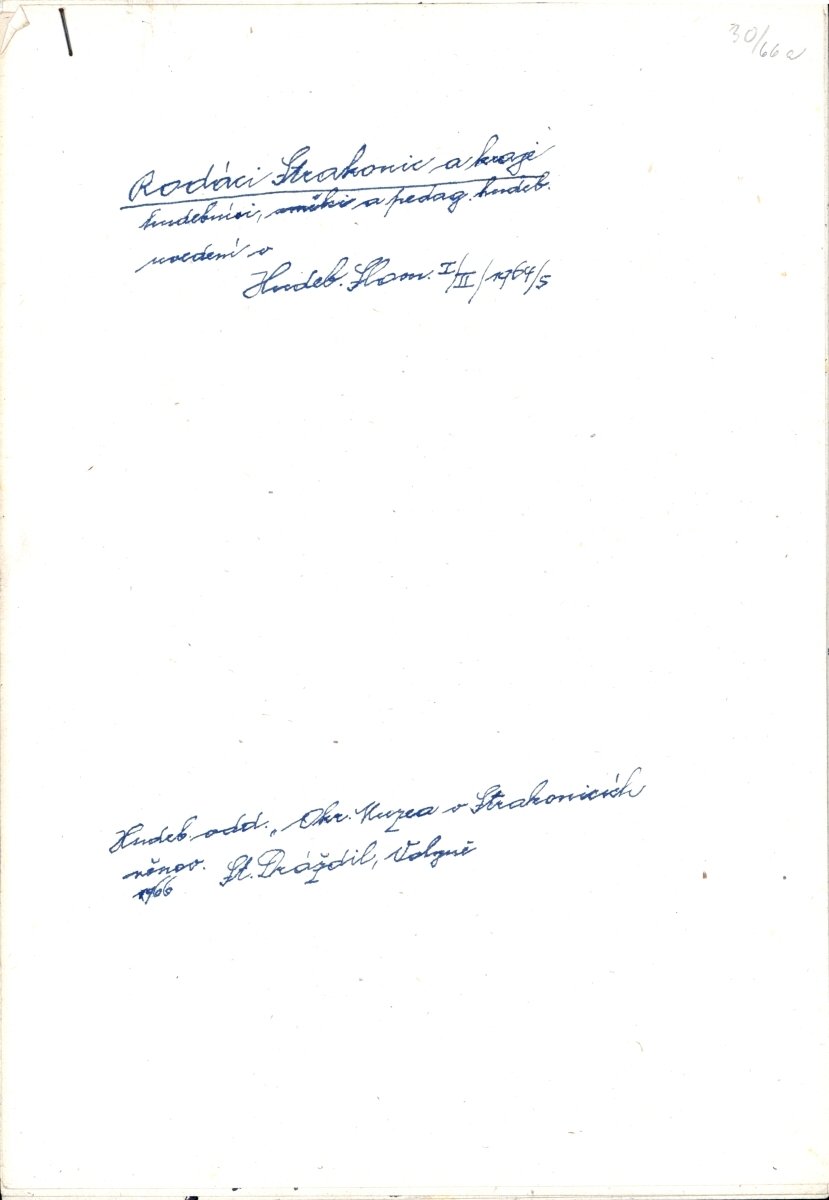 30/66a
Rodáci Strakonic a kraje
hudebníci, a pedag. hudeb.
uvedení v
Hudeb. Slovn. I/II/1964/5
Hudeb. odd. „Okr. Muzea v Strakonicích
věnov. St. Dráždil, Volyně
1966